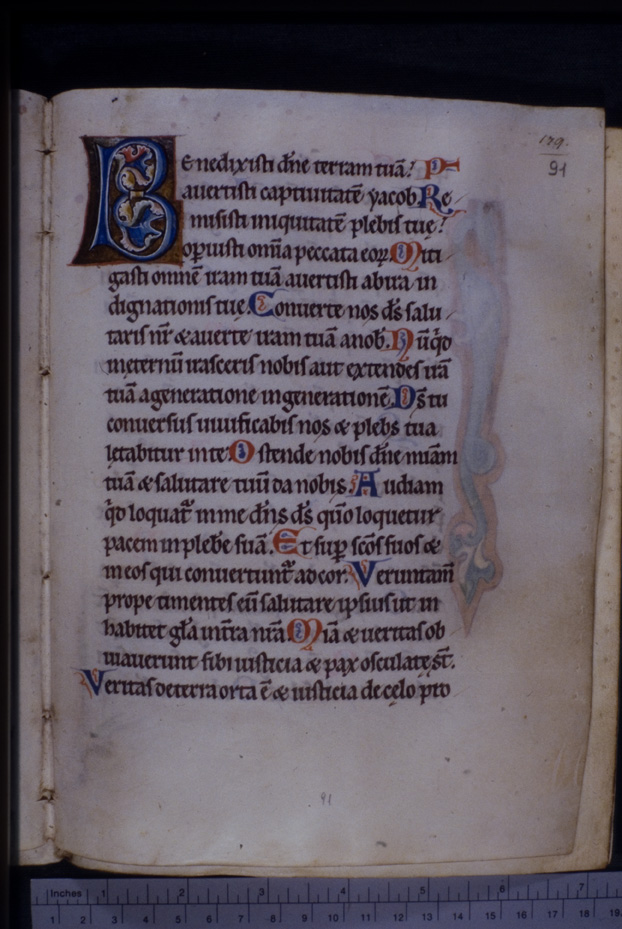 179.
91
Benedixisti dñe terram tuā! P
auertisti captiuitatē yacob. Re
misisti iniquitatē plebis tuę!
opuisti om̄ia peccata eoꝝ. Miti
gasti omnē iram tuā auertisti abira in
dignationis tuę. Conuerte nos d̄s salu
taris nr̄ & auerte iram tuā anob. Nūqd
ineternū irasceris nobis aut extendes irā
tuā ageneratione ingenerationē. D̄s tu
conuersus uiuificabis nos & plebs tua
lętabitur inte. Ostende nobis dñe miam̄
tuā & salutare tuū da nobis. Audiam
qd loquat̄ inme dñs d̄s qm̄o loquetur
pacem inplebe suā. Et sup sc̄os suos &
ineos qui conuertunt̄ adcor. Veruntam̄
prope timentes eū salutare ipsius ut in
habitet gl̄a int̄ra nr̄a. Mīa & ueritas ob
uiauerunt sibi iusticia & pax osculatę st̄.
Veritas deterra orta ē & iusticia de cęlo p̄ro
91
Inches 1 2 3 4 5 6 7
1 2 3 4 5 6 7 8 9 10 11 12 13 14 15 16 17 18 19